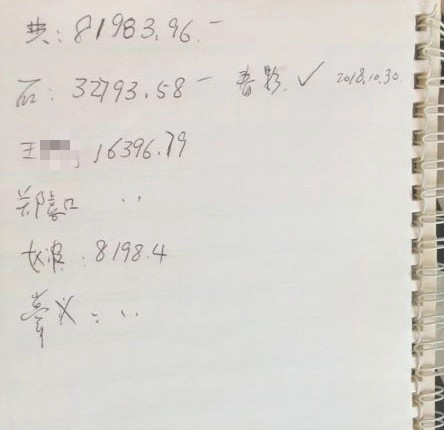 费: 81983.96.-
石: 32793.58 - 春影. ✓ 2018.10.30.
王 16396.79
郑 ..
: 8198.4
: ..